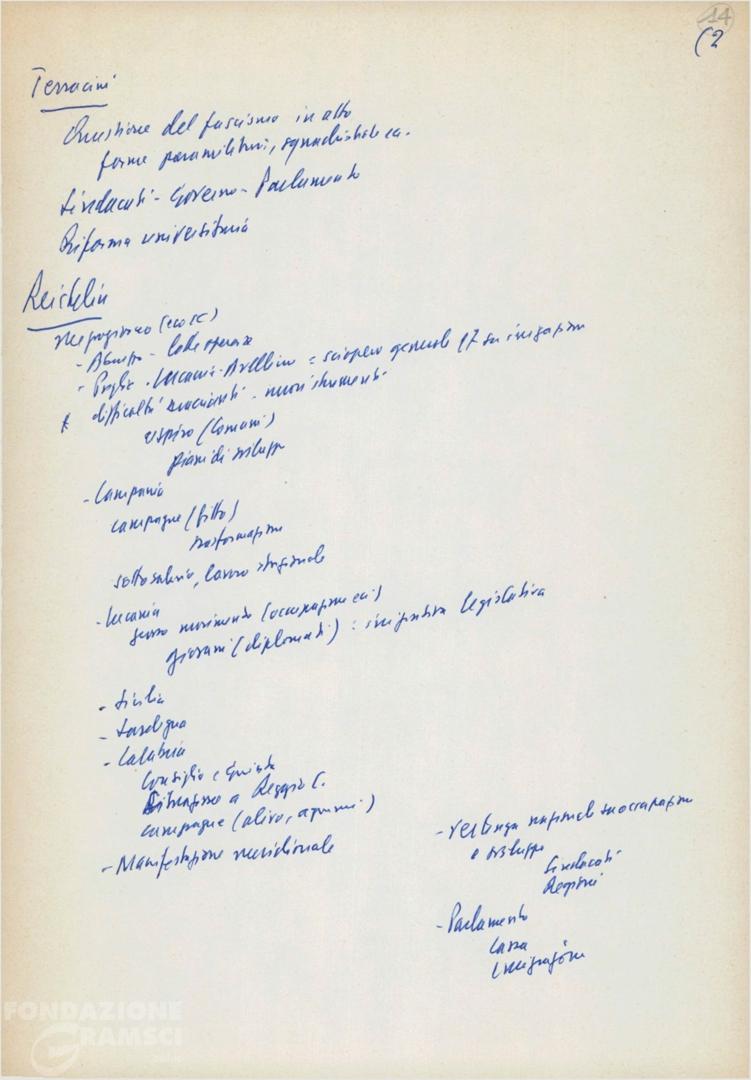 14
(2
Terracini
Questione del fascismo in atto
forme paramilitari, squadristiche.
Sindacati - Governo - Parlamento
Riforma universitaria
Reichlin
Mezzogiorno
- Abruzzo - lotte operaie
- Puglia - Lucania - Avellino = sciopero generale 17 su irrigazione
difficoltà braccianti - nuovi strumenti
(Comuni)
piani di sviluppo
- Campania
campagne (fitto)
trasformazione
sottosalario, lavoro stagionale
- Lucania
movimento
giovani (diplomati) : iniziativa legislativa
- Sicilia
- Sardegna
- Calabria
Consiglio e Giunta
Situazione a Reggio C.
campagne (olivo, agrumi)
- Manifestazione meridionale
- vertenza nazionale su occupazione
e sviluppo
Sindacati
Regioni
- Parlamento
Cassa
Emigrazione
FONDAZIONE
GRAMSCI